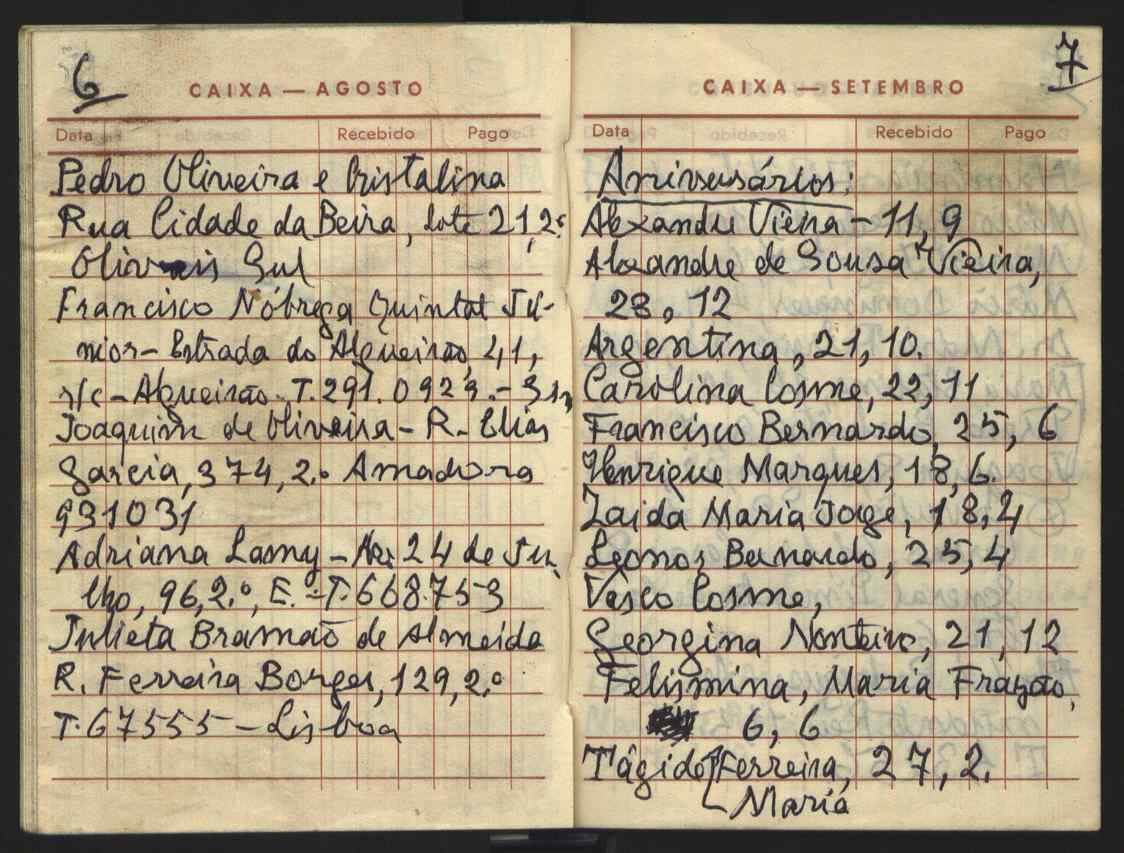 6
CAIXA — AGOSTO
Data Recebido Pago
Pedro Oliveira e Cristalina
Rua Cidade da Beira, lote 21, 2º
Olivais Sul
Francisco Nóbrega Quintal Jú-
nior - Estrada do Algueirão, 41,
r/c - Algueirão - T. 291.0929. -
Joaquim de Oliveira - R. Elias
Garcia, 374, 2.º Amadora
931031
Adriana Lamy - Av. 24 de Ju-
lho, 96, 2.º, E. - T. 668753
Julieta Bramão de Almeida
R. Ferreira Borges, 129, 2.º
T. 67555 - Lisboa
7
CAIXA — SETEMBRO
Data Recebido Pago
Aniversários:
Alexandre Vieira - 11, 9
Alexandre de Sousa Vieira,
28, 12
Argentina, 21, 10.
Carolina Cosme, 22, 11
Francisco Bernardo, 25, 6
Henrique Marques, 18, 6.
Zaida Maria Jorge, 18, 4
Leonor Bernardo, 25, 4
Vasco Cosme,
Georgina Monteiro, 21, 12
Felismina, Maria Frazão,
6, 6
Tágide Ferreira, 27, 2.
Maria